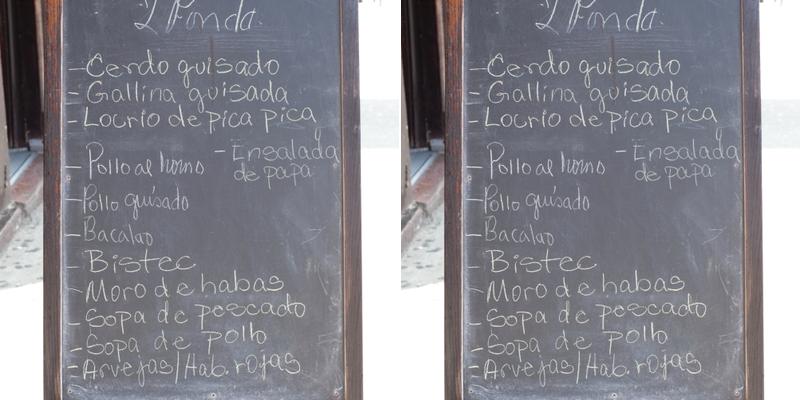 Fonda.
- Cerdo guisado
- Gallina guisada
- Locrio de pica pica
- Pollo al horno
- Ensalada
de papa
- Pollo guisado
- Bacalao
- Bistec
- Moro de habas
- Sopa de pescado
- Sopa de pollo
- Arvejas/Hab. rojas
Fonda.
- Cerdo guisado
- Gallina guisada
- Locrio de pica pica
- Pollo al horno
- Ensalada
de papa
- Pollo guisado
- Bacalao
- Bistec
- Moro de habas
- Sopa de pescado
- Sopa de pollo
- Arvejas/Hab. rojas